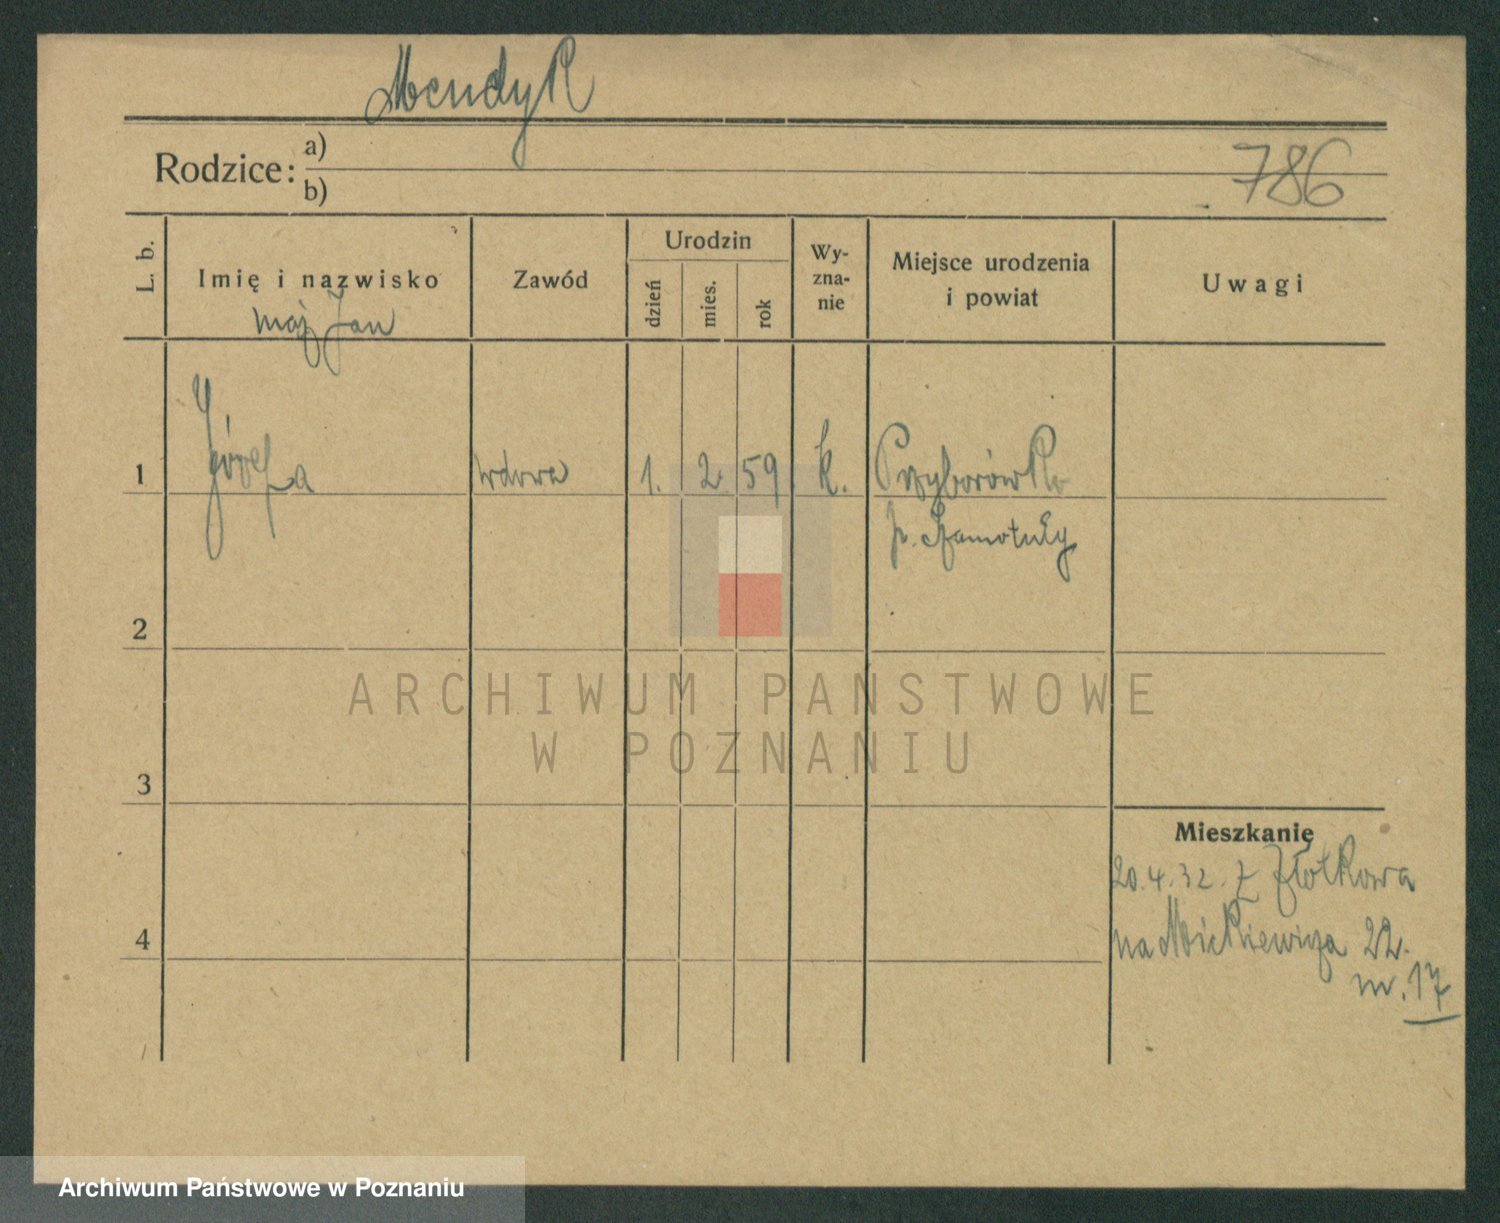 Mendyk
Rodzice: a)
b)
786
L. b.
Imię i nazwisko
Zawód
Urodzin
dzień
mies.
rok
Wy-
zna-
nie
Miejsce urodzenia
i powiat
Uwagi
mąż Jan
1 Józefa wdowa 1. 2 59 k. Przyborówko
p. Szamotuły
2
3
4
Mieszkanie
20.4.32. z Złotkowa
na Mickiewicza 22.
m. 17
ARCHIWUM PAŃSTWOWE
W POZNANIU
Archiwum Państwowe w Poznaniu